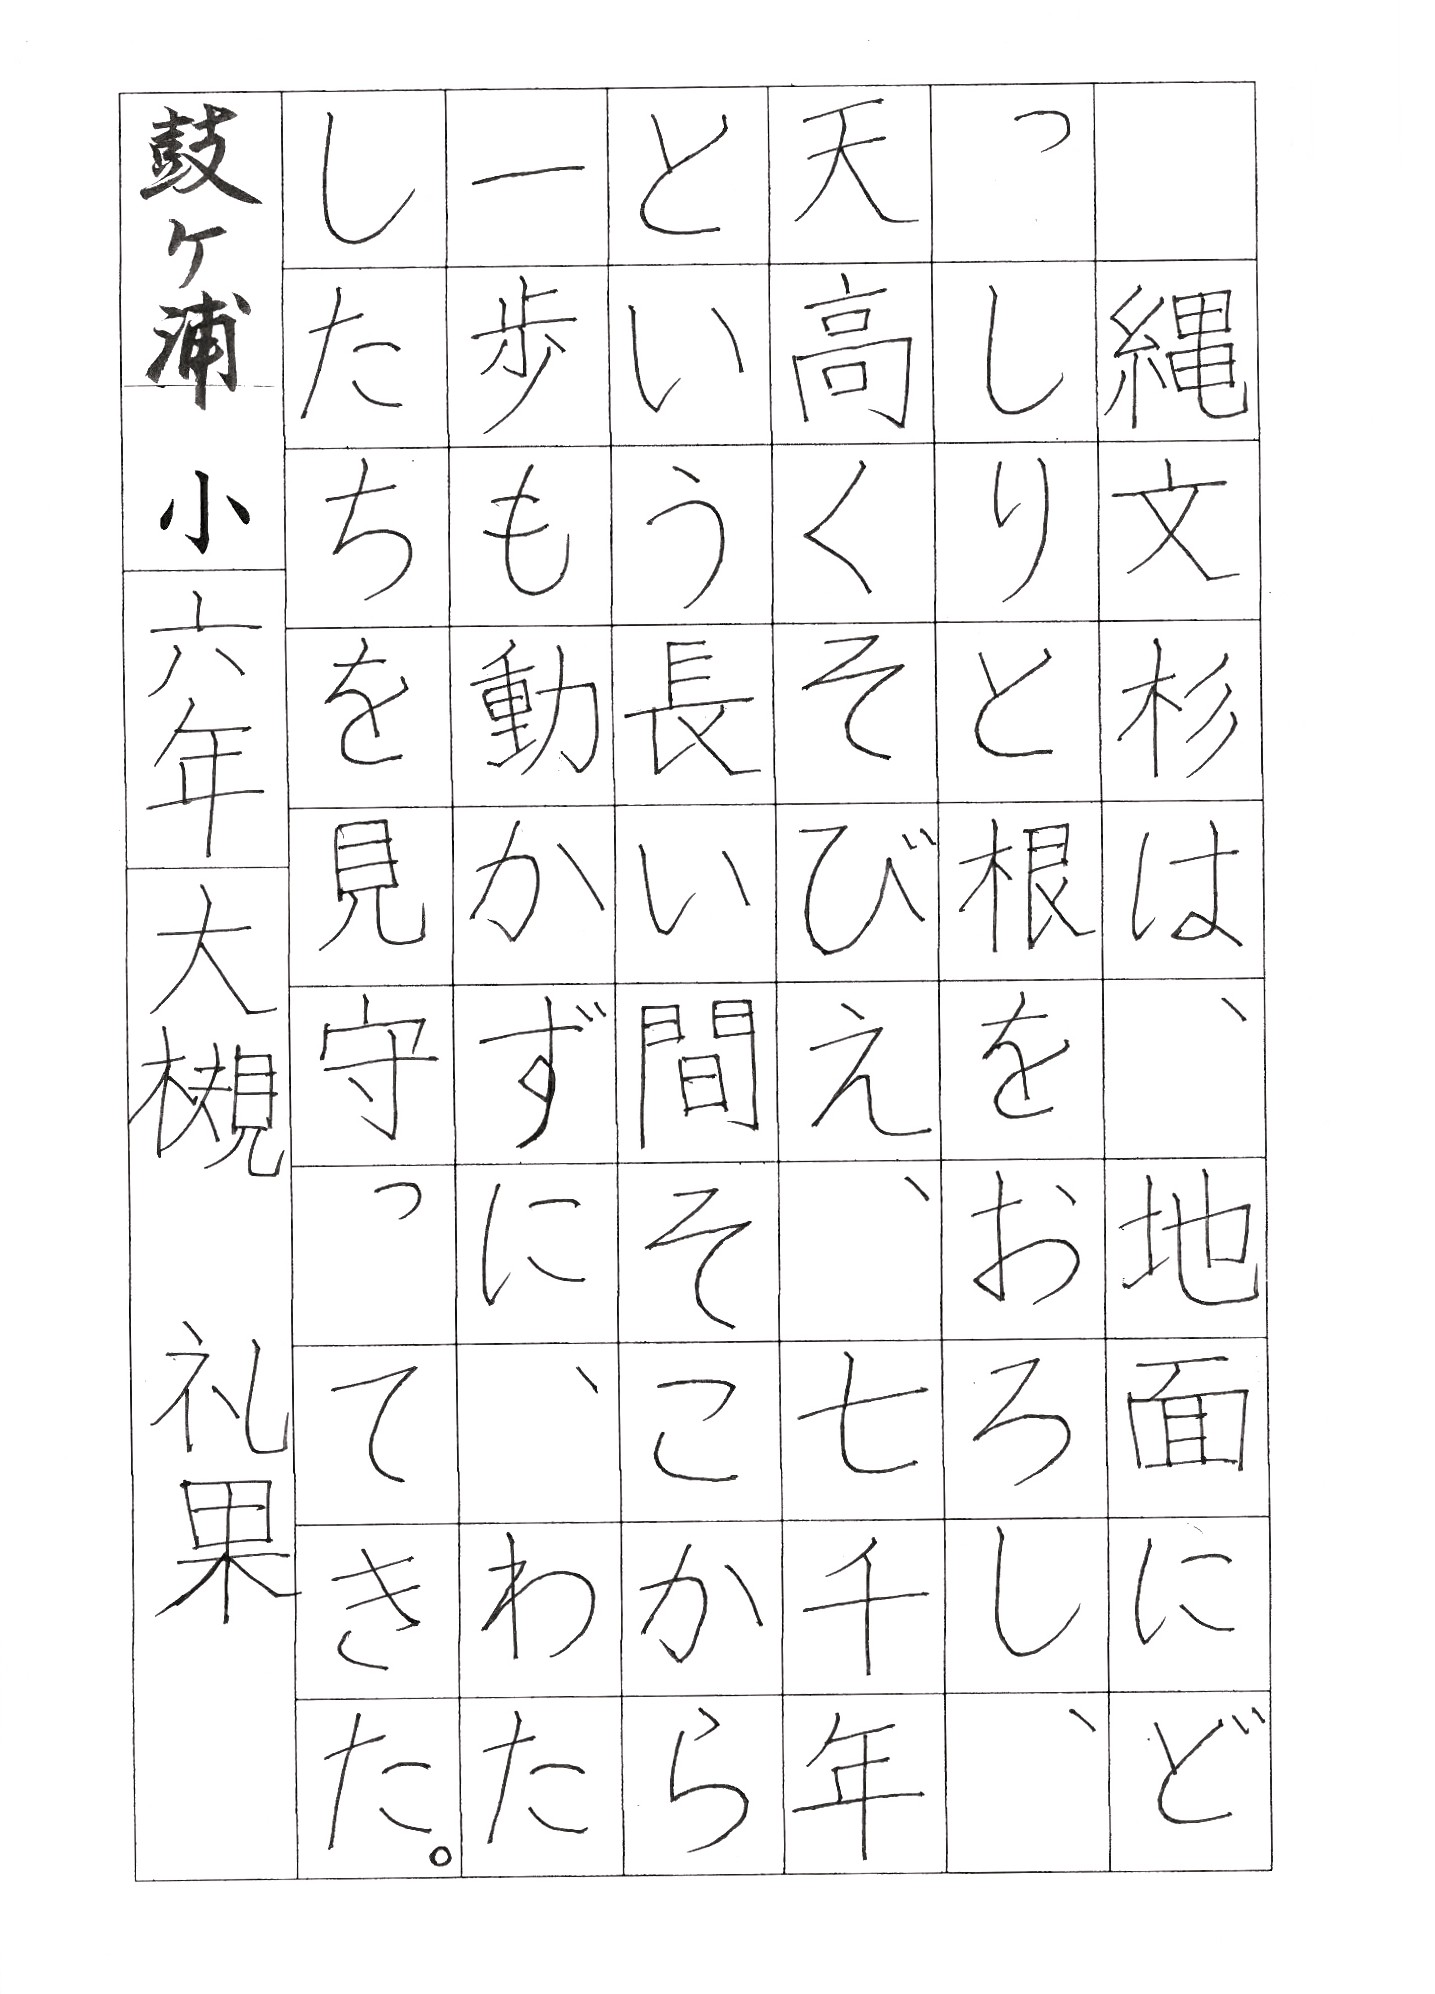 縄文杉は、地面にど
っしりと根をおろし、
天高くそびえ、七千年
という長い間そこから
一歩も動かずに、わた
したちを見守ってきた。
鼓ヶ浦小 六年 大槻 礼果